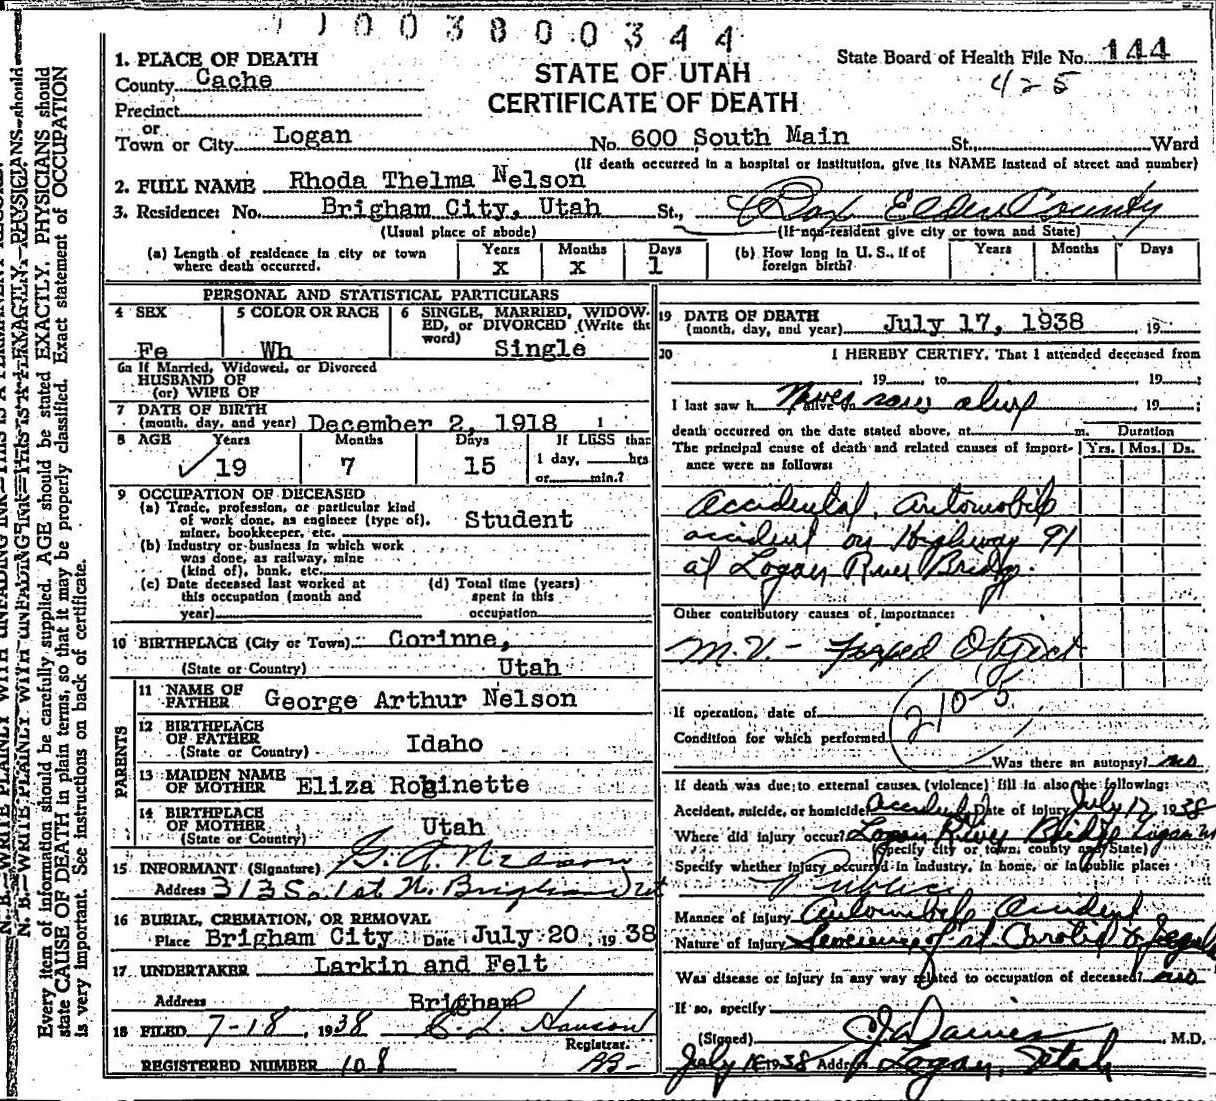 11003800344
1. PLACE OF DEATH
State Board of Health File No. 144
County Cache
STATE OF UTAH
425
Precinct
CERTIFICATE OF DEATH
or
Town or City Logan No. 600 South Main St., Ward
(If death occurred in a hospital or institution, give its NAME instead of street and number)
2. FULL NAME Rhoda Thelma Nelson
3. Residence: No. Brigham City, Utah St., Box Elder County
(Usual place of abode) (If non-resident give city or town and State)
(a) Length of residence in city or town where death occurred. Years x Months x Days 1
(b) How long in U. S., if of foreign birth? Years Months Days
PERSONAL AND STATISTICAL PARTICULARS
4 SEX Fe
5 COLOR OR RACE Wh
6 SINGLE, MARRIED, WIDOWED, or DIVORCED (Write the word) Single
6a If Married, Widowed, or Divorced
HUSBAND OF
(or) WIFE OF
7 DATE OF BIRTH
(month, day, and year) December 2, 1918 1
8 AGE Years 19 Months 7 Days 15 If LESS than
1 day, hrs
or min.?
9 OCCUPATION OF DECEASED
(a) Trade, profession, or particular kind
of work done, as engineer (type of), Student
miner, bookkeeper, etc.
(b) Industry or business in which work
was done, as railway, mine
(kind of), bank, etc.
(c) Date deceased last worked at
this occupation (month and
year)
(d) Total time (years)
spent in this
occupation
10 BIRTHPLACE (City or Town) Corinne,
(State or Country) Utah
PARENTS
11 NAME OF
FATHER George Arthur Nelson
12 BIRTHPLACE
OF FATHER Idaho
(State or Country)
13 MAIDEN NAME
OF MOTHER Eliza Robinette
14 BIRTHPLACE
OF MOTHER Utah
(State or Country)
15 INFORMANT (Signature) G. A. Nelson
Address 313 So. 1st W. Brigham Ut
16 BURIAL, CREMATION, OR REMOVAL
Place Brigham City Date July 20, 1938
17 UNDERTAKER Larkin and Felt
Address Brigham
18 FILED 7-18, 1938 Hanson
Registrar.
REGISTERED NUMBER 108
19 DATE OF DEATH
(month, day, and year) July 17, 1938, 19
20 I HEREBY CERTIFY, That I attended deceased from
, 19 , to , 19 ;
I last saw h alive on Never saw alive , 19 ;
death occurred on the date stated above, at m. Duration
The principal cause of death and related causes of importance were as follows: Yrs. Mos. Ds.
Accidental, automobile
accident on Highway 91
at Logan River Bridge.
Other contributory causes of importance:
M.V. - Fixed Object
210-5
If operation, date of
Condition for which performed
Was there an autopsy? no
If death was due to external causes, (violence) fill in also the following:
Accident, suicide, or homicide? accidental Date of injury July 17 1938
Where did injury occur? Logan River Bridge Logan Ut
(Specify city or town, county and State)
Specify whether injury occurred in industry, in home, or in public place:
Public
Manner of injury Automobile accident
Nature of injury Severence of rt Carotid & Jegular
Was disease or injury in any way related to occupation of deceased? no
If so, specify
(Signed) Davies, M.D.
July 18 1938 Address Logan, Utah
N. B.—WRITE PLAINLY WITH UNFADING INK—THIS IS A PERMANENT RECORD.
Every item of information should be carefully supplied. AGE should be stated EXACTLY. PHYSICIANS should
state CAUSE OF DEATH in plain terms, so that it may be properly classified. Exact statement of OCCUPATION
is very important. See instructions on back of certificate.